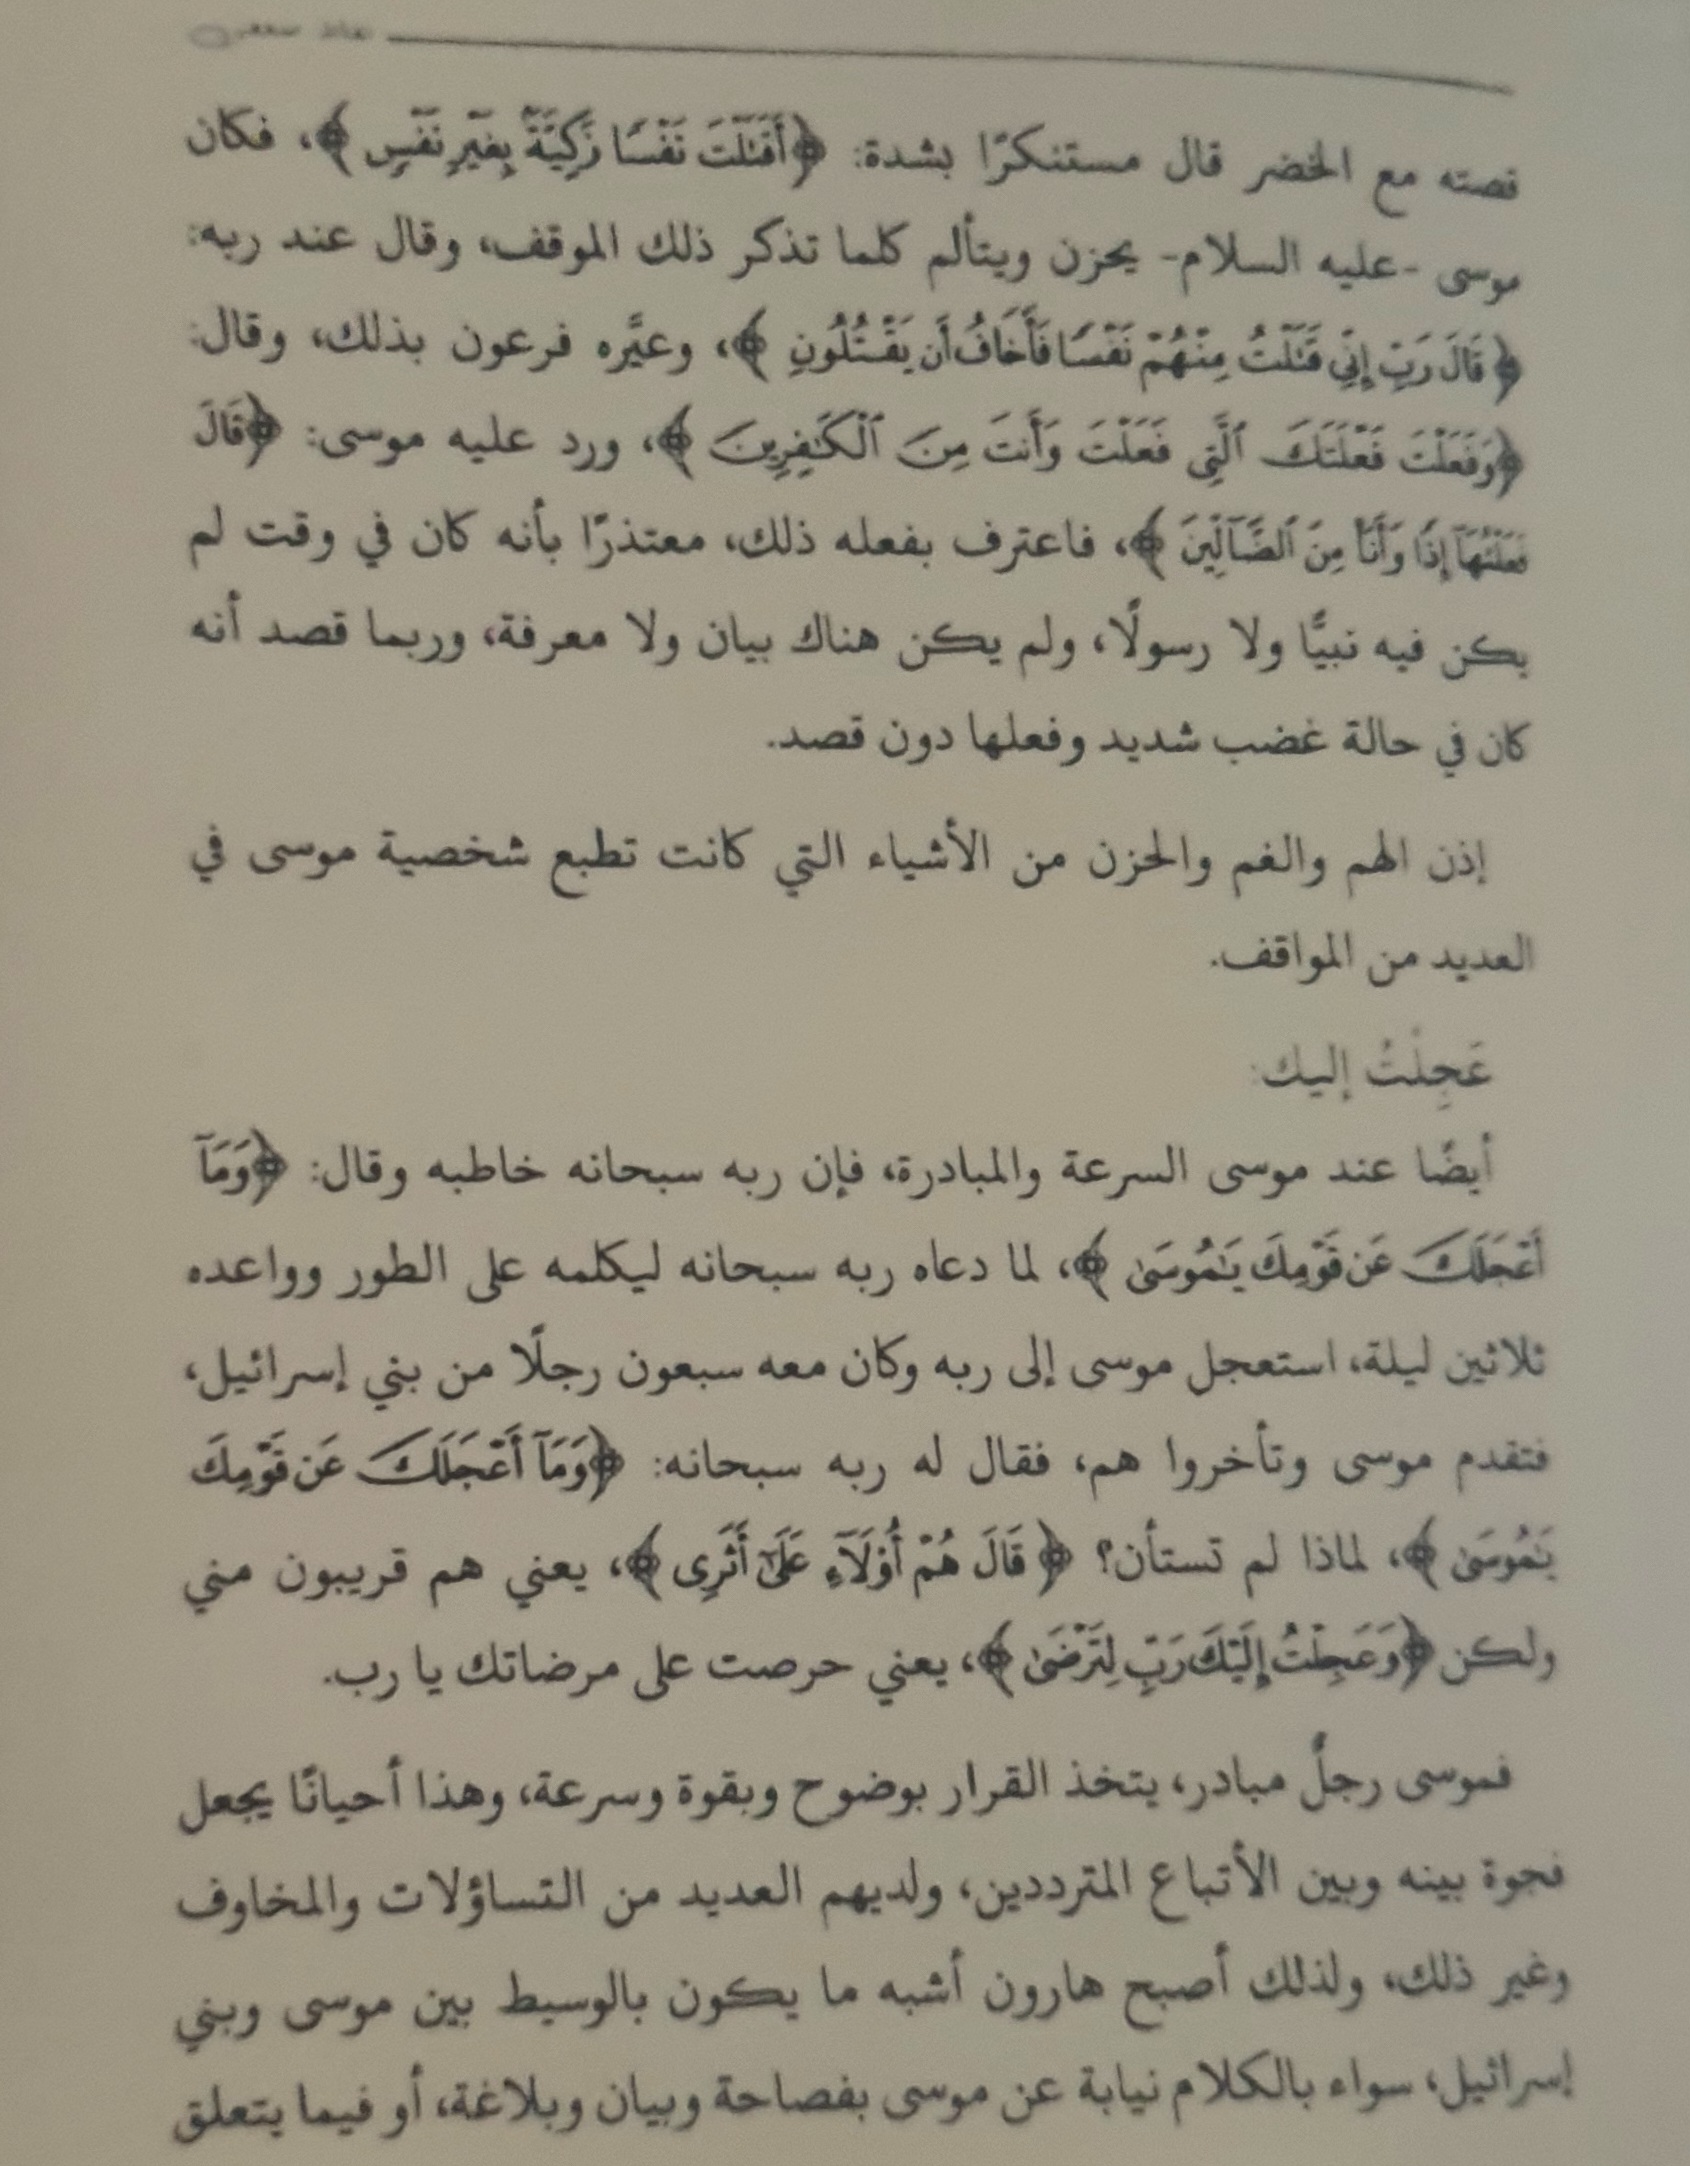 قصته مع الخضر قال مستنكرًا بشدة: ﴿أَقَتَلْتَ نَفْسًا زَكِيَّةً بِغَيْرِ نَفْسٍ﴾، فكان
موسى -عليه السلام- يحزن ويتألم كلما تذكر ذلك الموقف، وقال عند ربه:
﴿قَالَ رَبِّ إِنِّي قَتَلْتُ مِنْهُمْ نَفْسًا فَأَخَافُ أَن يَقْتُلُونِ﴾، وعيَّره فرعون بذلك، وقال:
﴿وَفَعَلْتَ فَعْلَتَكَ ٱلَّتِى فَعَلْتَ وَأَنتَ مِنَ ٱلْكَٰفِرِينَ﴾، ورد عليه موسى: ﴿قَالَ
فَعَلْتُهَآ إِذًا وَأَنَا۠ مِنَ ٱلضَّآلِّينَ﴾، فاعترف بفعله ذلك، معتذرًا بأنه كان في وقت لم
يكن فيه نبيًّا ولا رسولًا، ولم يكن هناك بيان ولا معرفة، وربما قصد أنه
كان في حالة غضب شديد وفعلها دون قصد.
إذن الهم والغم والحزن من الأشياء التي كانت تطبع شخصية موسى في
العديد من المواقف.
عَجِلْتُ إليك:
أيضًا عند موسى السرعة والمبادرة، فإن ربه سبحانه خاطبه وقال: ﴿وَمَآ
أَعْجَلَكَ عَن قَوْمِكَ يَٰمُوسَىٰ﴾، لما دعاه ربه سبحانه ليكلمه على الطور وواعده
ثلاثين ليلة، استعجل موسى إلى ربه وكان معه سبعون رجلًا من بني إسرائيل،
فتقدم موسى وتأخروا هم، فقال له ربه سبحانه: ﴿وَمَآ أَعْجَلَكَ عَن قَوْمِكَ
يَٰمُوسَىٰ﴾، لماذا لم تستأن؟ ﴿قَالَ هُمْ أُو۟لَآءِ عَلَىٰٓ أَثَرِى﴾، يعني هم قريبون مني
ولكن ﴿وَعَجِلْتُ إِلَيْكَ رَبِّ لِتَرْضَىٰ﴾، يعني حرصت على مرضاتك يا رب.
فموسى رجلٌ مبادر، يتخذ القرار بوضوح وبقوة وسرعة، وهذا أحيانًا يجعل
فجوة بينه وبين الأتباع المترددين، ولديهم العديد من التساؤلات والمخاوف
وغير ذلك، ولذلك أصبح هارون أشبه ما يكون بالوسيط بين موسى وبني
إسرائيل، سواء بالكلام نيابة عن موسى بفصاحة وبيان وبلاغة، أو فيما يتعلق